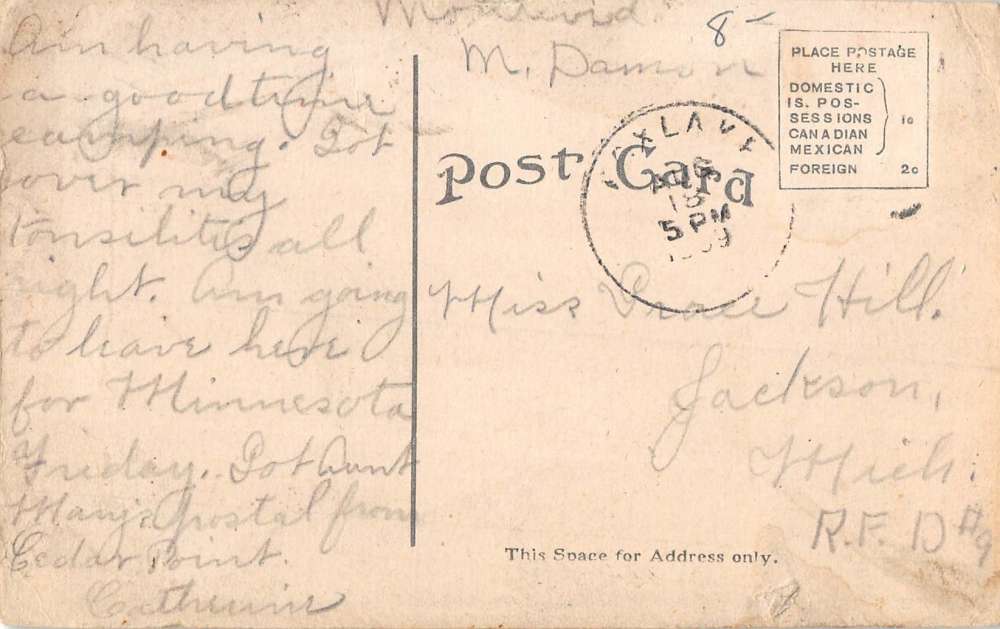 8-
M. Damon
Am having
a good time
camping. Got
over my
tonsilities all
right. Am going
to leave here
for Minnesota
Friday. Got Aunt
Mary's postal from
Cedar Point.
Catherine
Post Card
PLACE POSTAGE
HERE
DOMESTIC
IS. POS-
SESSIONS
CANADIAN
MEXICAN
1c
FOREIGN 2c
AUG
18
5 PM
Miss Grace Hill.
Jackson,
Mich.
R.F.D #9
This Space for Address only.